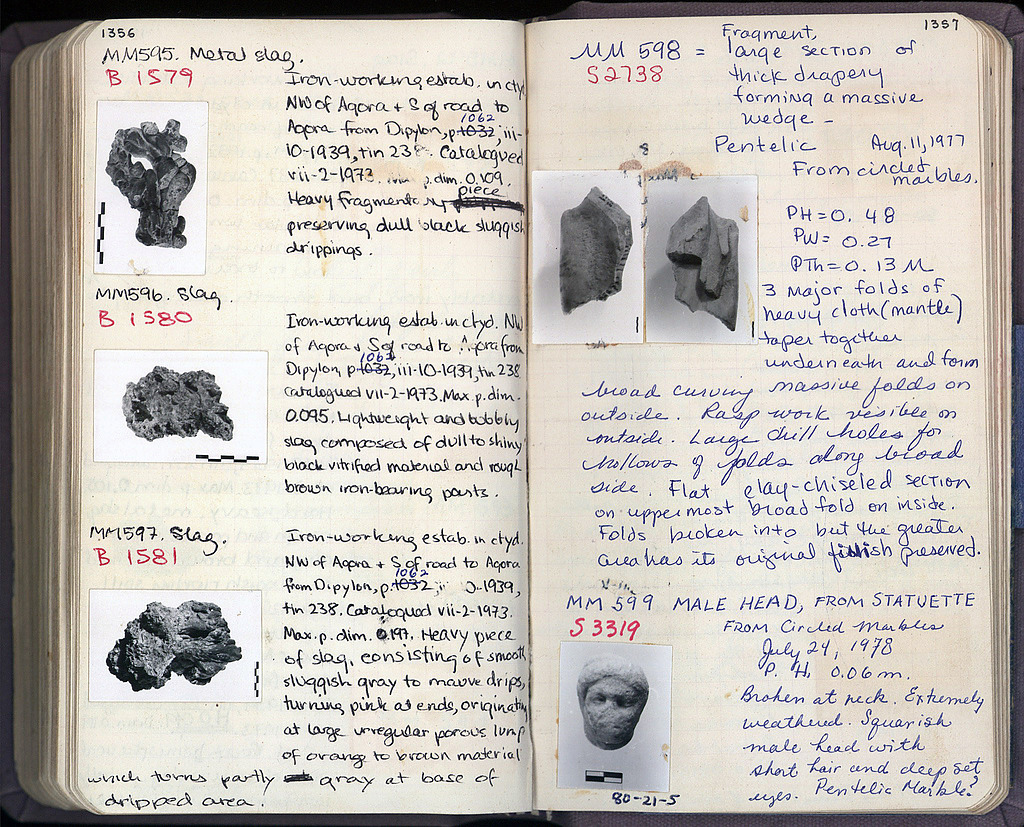 1356
MM595. Metal slag.
B 1579
Iron-working estab. in ctyd
NW of Agora + S of road to
1062
Agora from Dipylon, p. 1032, iii-
10-1939, tin 238. Catalogued
vii-2-1973. p. dim. 0.109.
piece
Heavy fragments
preserving dull black sluggish
drippings.
MM596. Slag.
B 1580
Iron-working estab. in ctyd. NW
of Agora + S of road to Agora from
1062
Dipylon, p. 1032, iii-10-1939, tin 238
catalogued vii-2-1973. Max. p. dim.
0.095. Lightweight and bubbly
slag composed of dull to shiny
black vitrified material and rough
brown iron-bearing parts.
MM597. Slag.
B 1581
Iron-working estab. in ctyd.
NW of Agora + S of road to Agora
1062
from Dipylon, p. 1032, 0-1939,
tin 238. Catalogued vii-2-1973.
Max. p. dim. Heavy piece
of slag, consisting of smooth
sluggish gray to mauve drips,
turning pink at ends, originatin
at large irregular porous lump
of orange to brown material
which turns partly gray at base of
dripped area.
1357
MM 598 = Fragment,
large section of
S2738
thick drapery
forming a massive
wedge -
Pentelic Aug. 11, 1977
From circled
marbles.
PH = 0.48
PW = 0.27
PTh = 0.13 M
3 Major folds of
heavy cloth (mantle)
taper together
underneath and form
broad curving massive folds on
outside. Rasp work visible on
outside. Large drill holes for
hollows of folds along broad
side. Flat clay-chiseled section
on uppermost broad fold on inside.
Folds broken into but the greater
area has its original finish preserved.
MM 599 MALE HEAD, FROM STATUETTE
S 3319
FROM Circled Marbles
July 29, 1978
P. H. 0.06 m.
Broken at neck. Extremely
weathered. Squarish
male head with
short hair and deep set
eyes. Pentelic Marble?
80-21-5